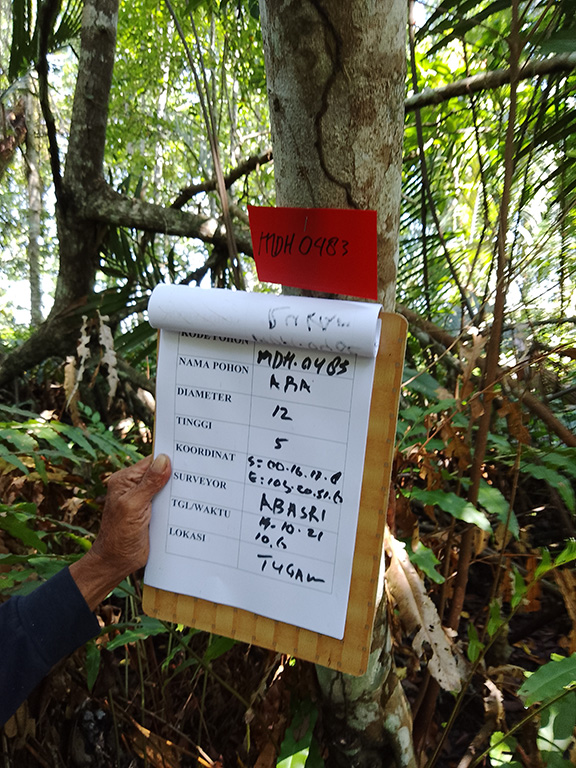 MDH 0483
KODE POHON MDH.0483
NAMA POHON ARA
DIAMETER 12
TINGGI 5
KOORDINAT S=00.16.17.6
E=103.20.51.6
SURVEYOR ABASRI
TGL/WAKTU 19.10.21
10.6
LOKASI